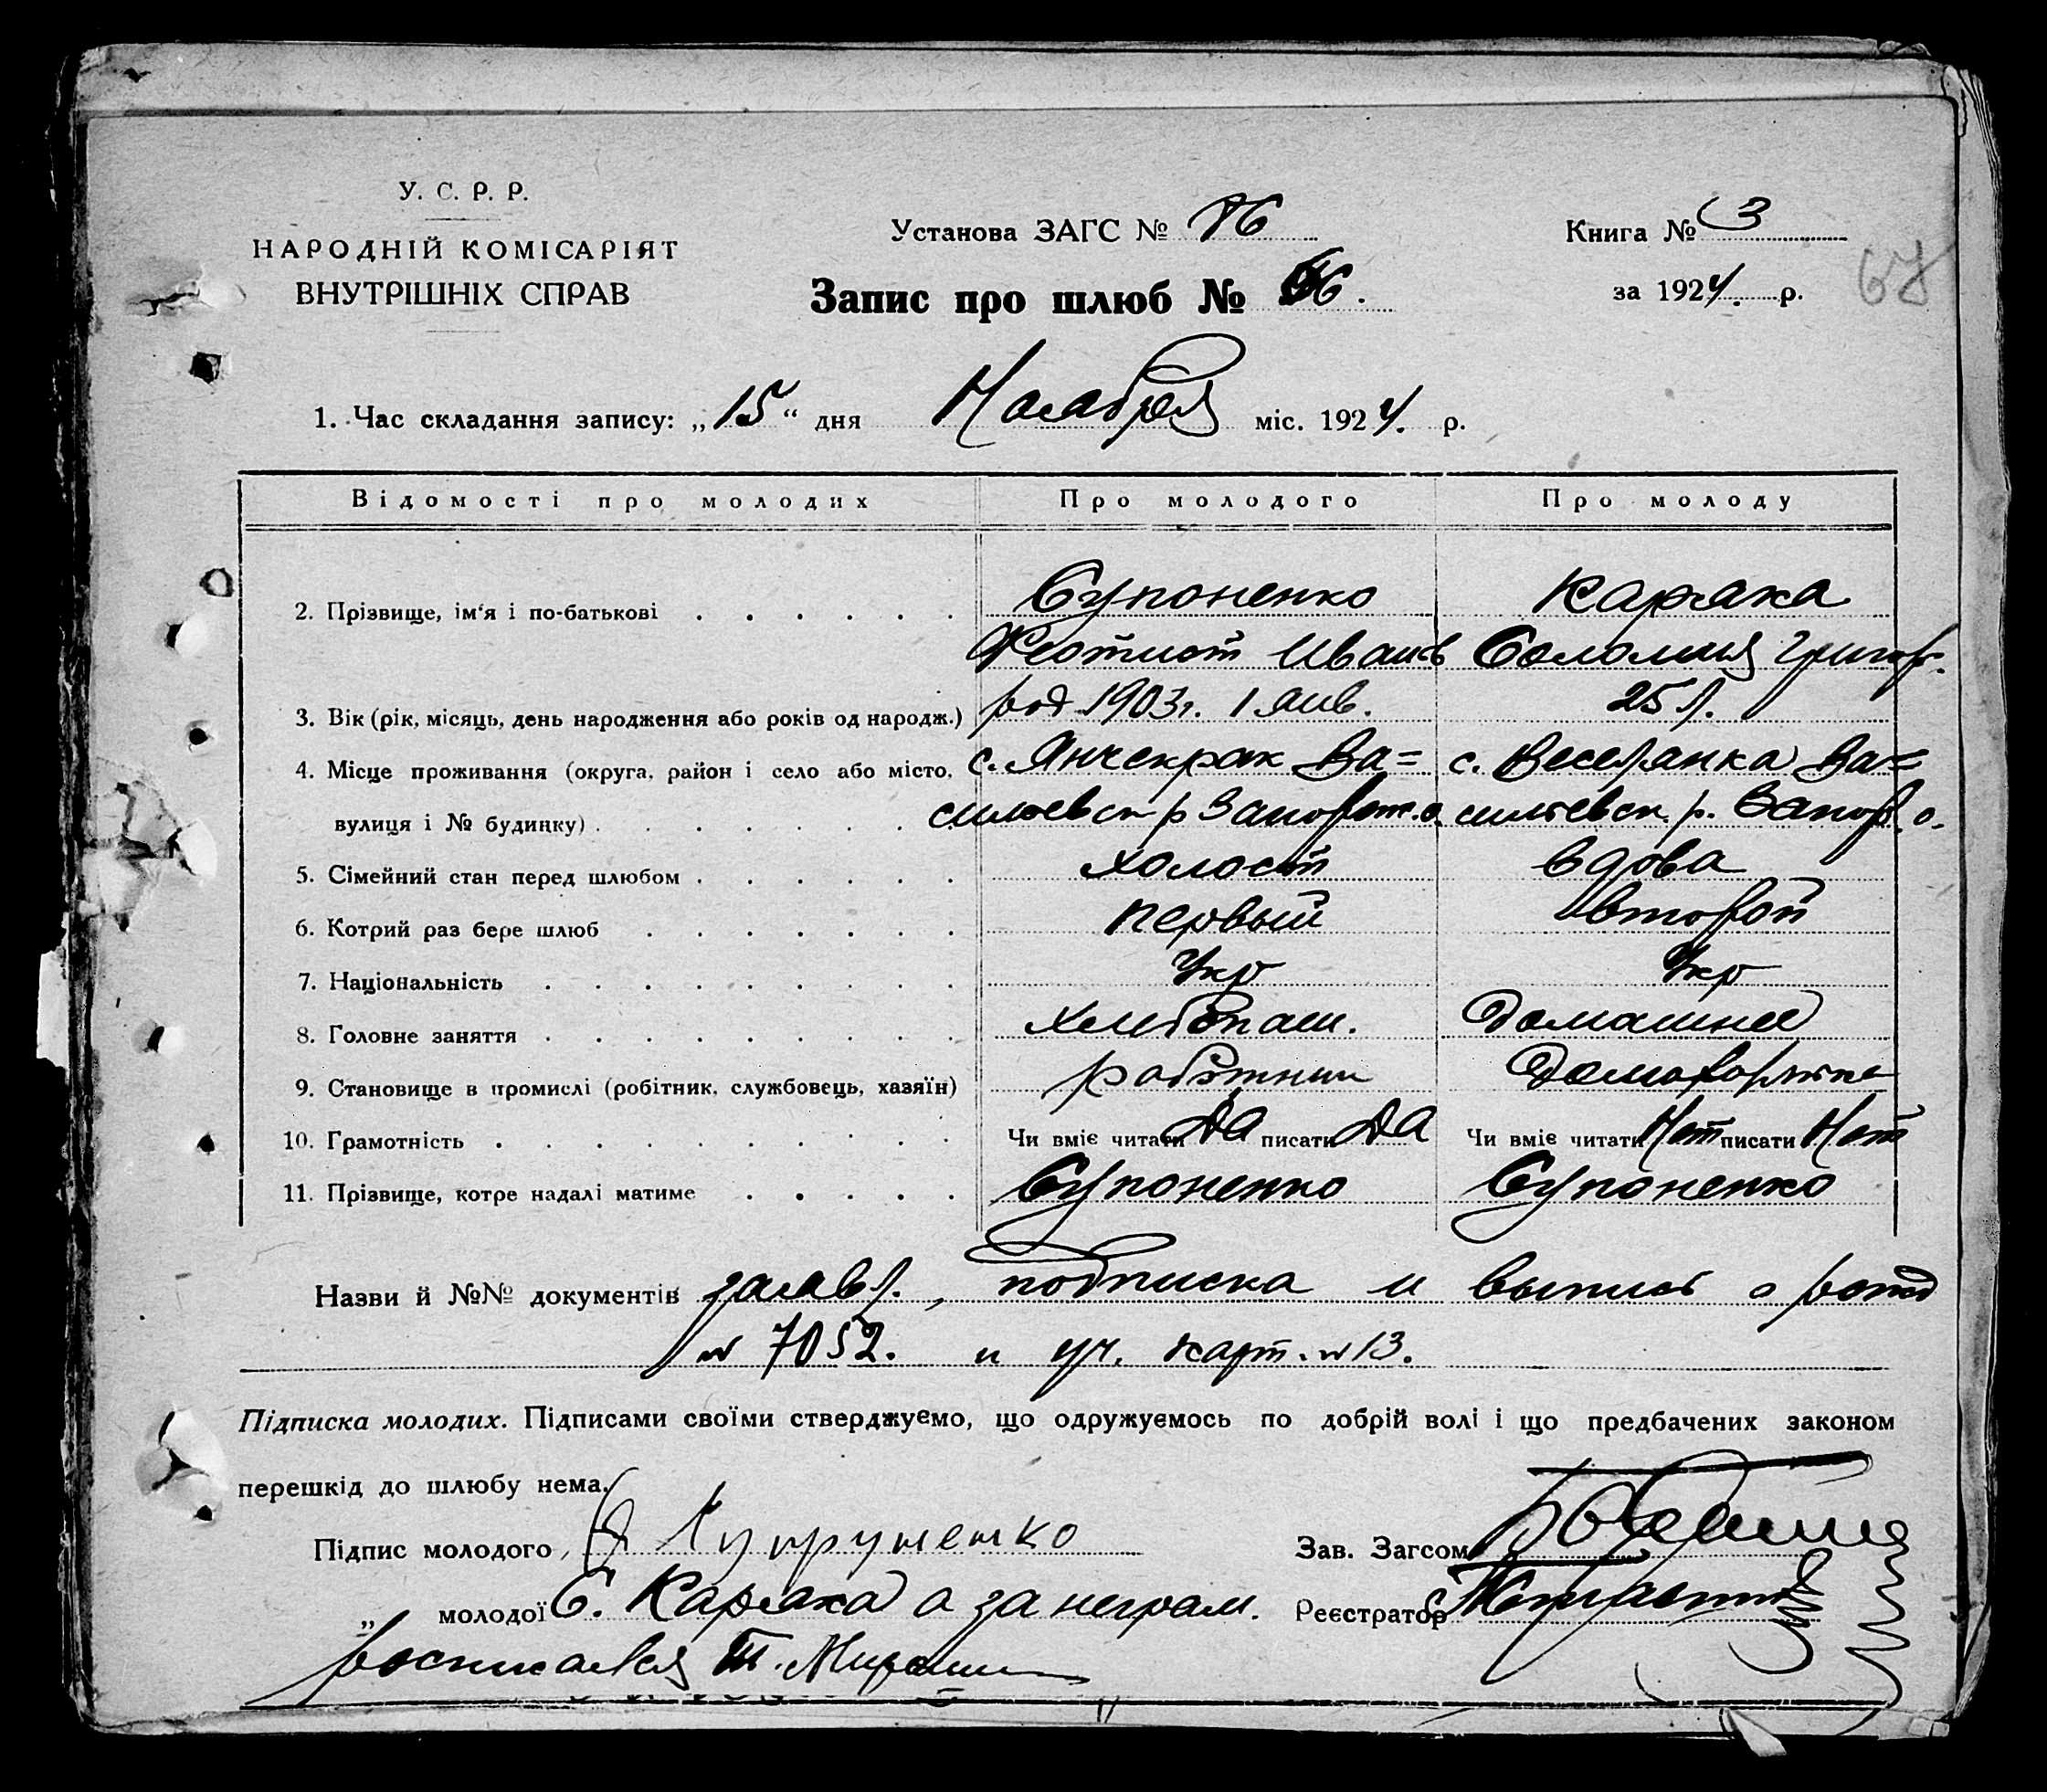 У. С. Р. Р.
НАРОДНІЙ КОМІСАРІЯТ
ВНУТРІШНІХ СПРАВ
Установа ЗАГС №
Книга № 3
Запис про шлюб № 66.
за 1924. р.
67
1. Час складання запису: „15“ дня Ноября міс. 1924. р.
Відомості про молодих Про молодого Про молоду
2. Прізвище, ім‘я і по-батькові Супоненко Каряка
Феотист Иванов Соломия Григор.
3. Вік (рік, місяць, день народження або років од народж.) род 1903 г. 1 янв. 25 л.
4. Місце проживання (округа, район і село або місто, с. Янчекрак Ва= с. Веселянка Ва=
вулиця і № будинку) сильевск р Запорож. о. сильевск. р. Запор. о.
5. Сімейний стан перед шлюбом холост вдова
6. Котрий раз бере шлюб первый второй
7. Національність Укр Укр
8. Головне заняття хлебопаш. Домашнее
9. Становище в промислі (робітник, службовець, хазяїн)
10. Грамотність Чи вміє читати ДА писати ДА Чи вміє читати Нет писати Нет
11. Прізвище, котре надалі матиме Супоненко Супоненко
Назви й №№ документів заявл., подписка и выпись о рожд
№ 7052. и уч. карт. № 13.
Підписка молодих. Підписами своїми стверджуємо, що одружуємось по добрій волі і що предбачених законом
перешкід до шлюбу нема.
Підпис молодого
Зав. Загсом
„ молодої С. Каряка а за неграм. Реєстратор
росписался